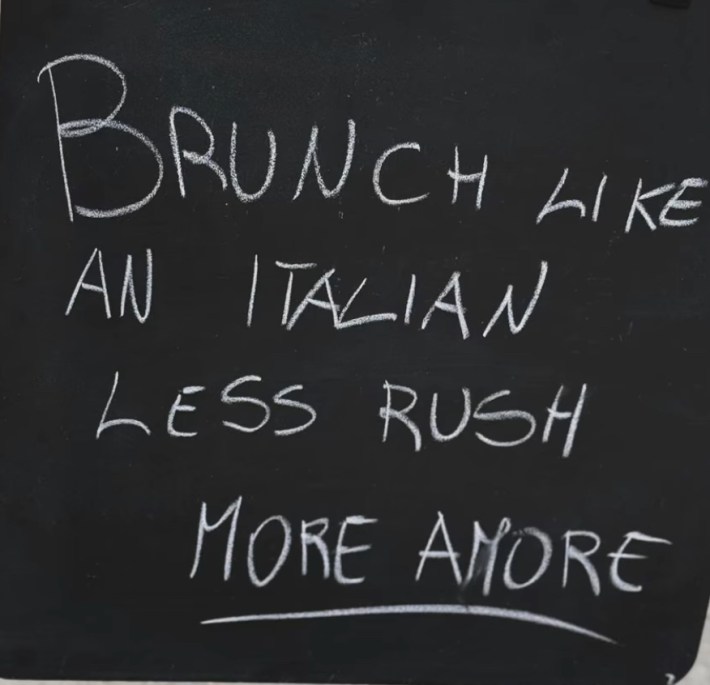 BRUNCH LIKE
AN ITALIAN
LESS RUSH
MORE AMORE